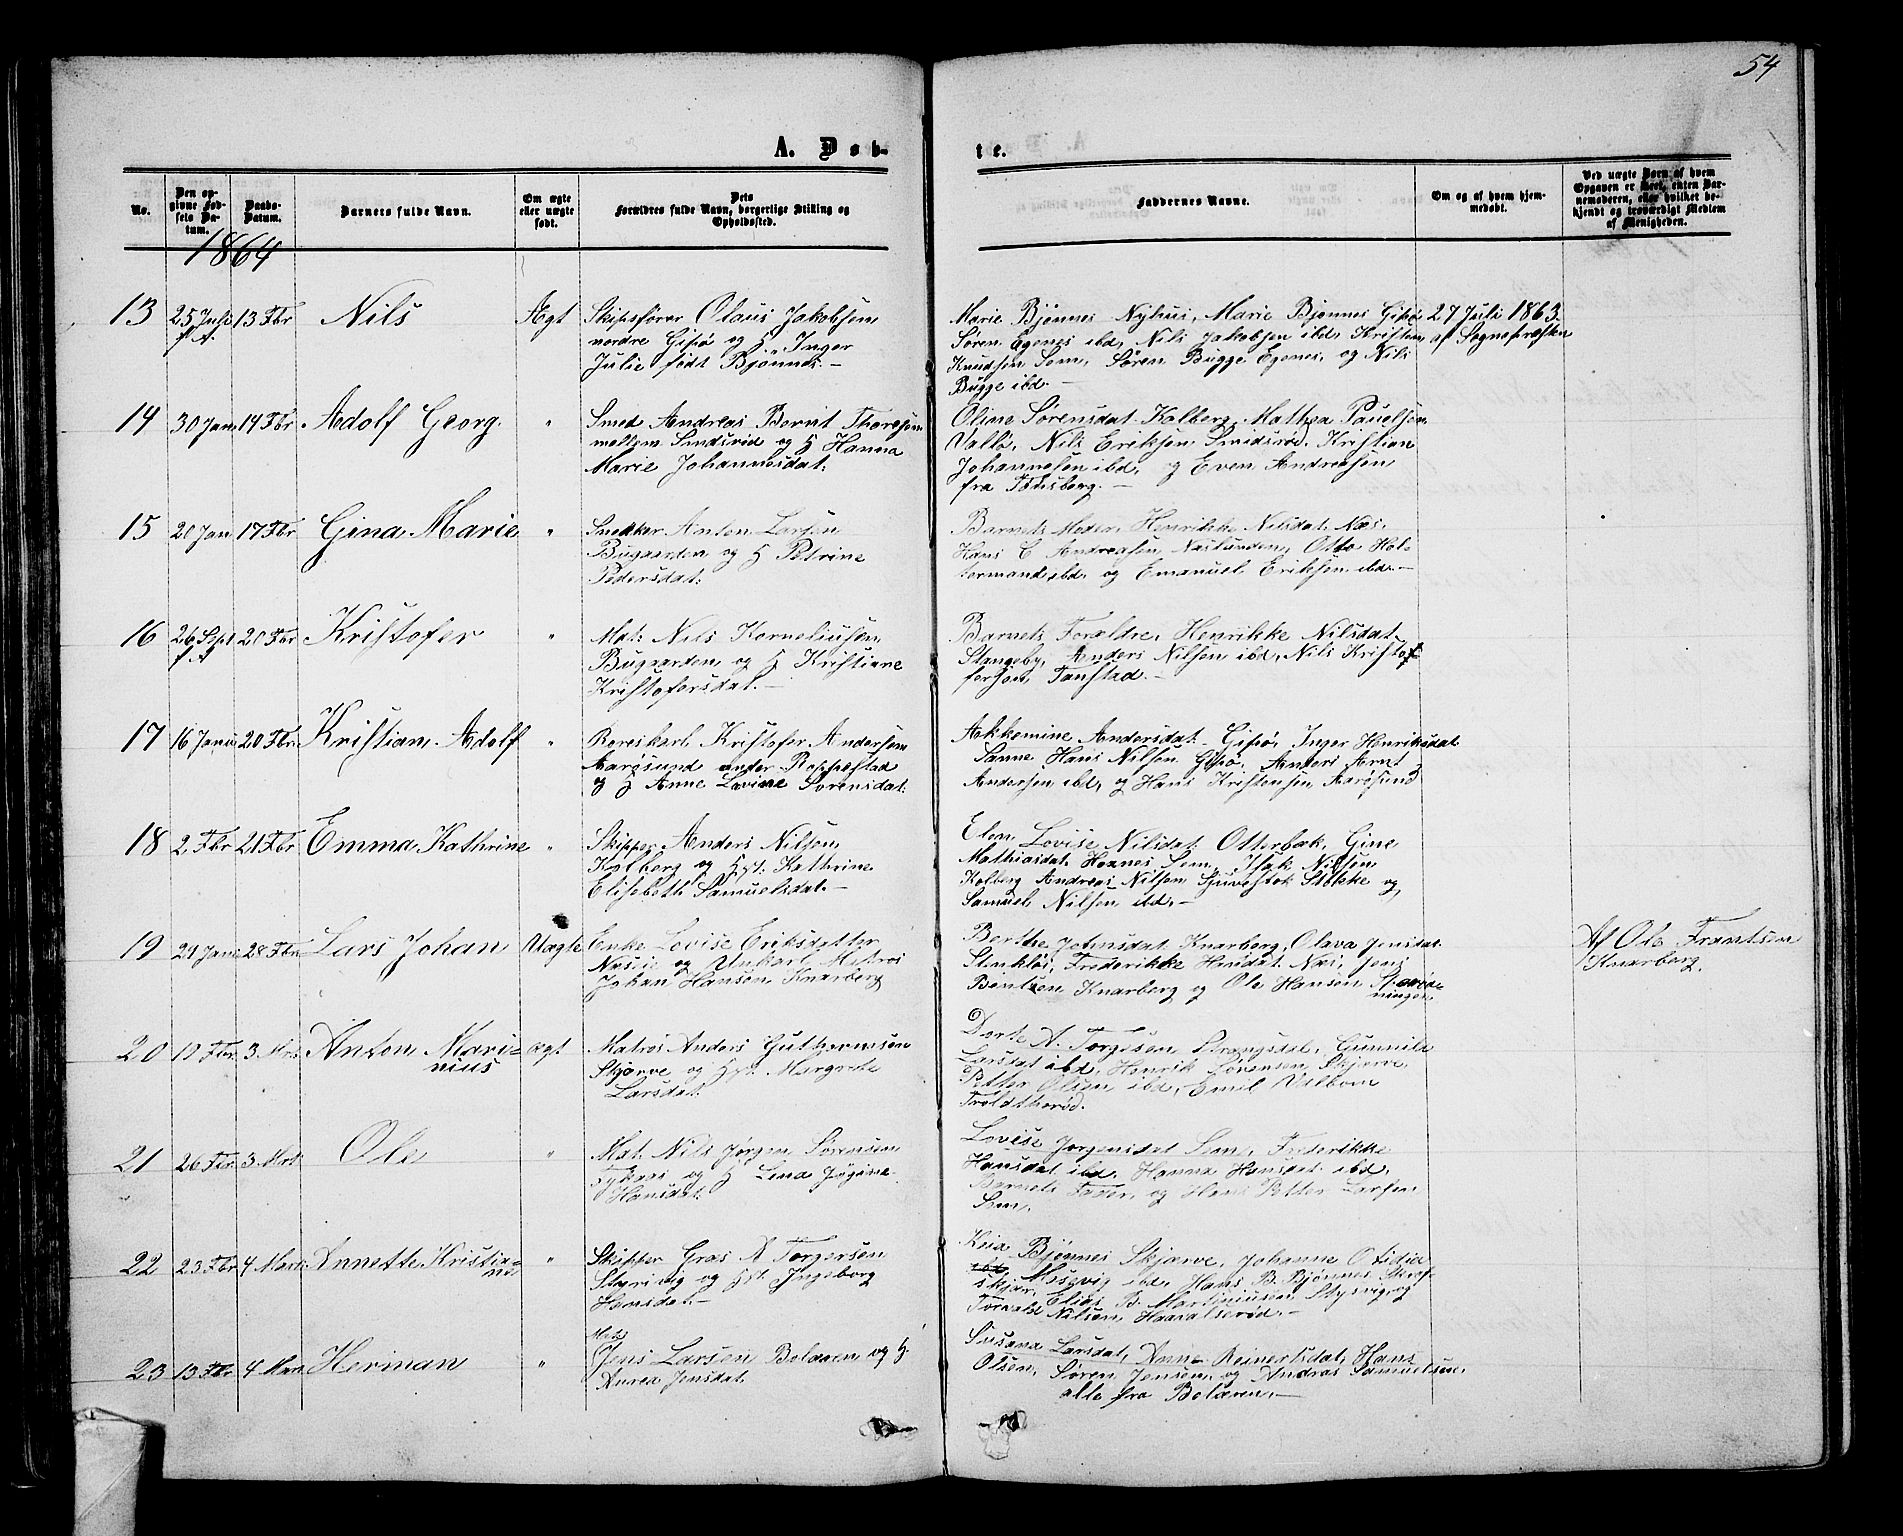 54
A. Døb-
te.
No.
Den op-
givne Fød-
sels Da-
tum.
Daabs-
Datum.
Barnets fulde Navn.
Om ægte
eller uægte
født.
Dets
Forældres fulde Navn, borgerlige Stilling og
Opholdssted.
Faddernes Navne.
Om og af hvem hjem-
medøbt.
Ved uægte Børn af hvem
Opgaven er skeet, enten Bar-
nemoderen, eller hvilket be-
kjendt og troværdigt Medlem
af Menigheden.
1864
13 25 Juli f A. 13 Fbr Nils Ægt
Skipsfører Olaus Jakobsen
nordre Gipø og H. Inger
Julie født Bjønnes.-
Marie Bjønnes Nyhus, Marie Bjønnes Gipø
Søren Egenes ibd, Nils Jakobsen ibd, Kristen
Knudsen Sem, Søren Bugge Egenes, og Nils
Bugge ibd.-
27 Juli 1863.
af Sognepræsten
14 30 Jan 14 Fbr Adolf Georg. "
Smed Andreas Bernt Thoresen
mellem Smidsrød og H Hanna
Marie Johannesdat:
Oline Sørensdat. Kolberg, Mathea Paulsen
Vallø, Nils Eriksen Smidsrød, Kristian
Johannesen ibd, og Even Andreasen
fra Tønsberg.-
15 20 Jan 17 Fbr Gina Marie "
Snedker Anton Larsen
Bugaarden og H Petrine
Pedersdat:
Barnets Moder, Henrikke Nilsdat. Næs,
Hans E Andreasen Næslunden, Otto Hol-
termand ibd, og Emanuel Eriksen ibd.-
16 26 Sept f A 20 Fbr Kristofer "
Mat: Nils Korneliusen
Bugaarden og H Kristiane
Kristofersdat.-
Barnets Forældre, Henrikke Nilsdat
Stangeby, Anders Nilsen ibd, Nils Kristof-
fersen, Tanstad.-
17 16 Janu 20 Fbr. Kristian Adolf "
Roreskarl Kristofer Andersen
Aarøsund under Roppestad
og H Anne Lovise Sørensdat:
Akkomine Andersdat. Gipø, Inger Henriksdat
Sanne, Hans Nilsen Gipø, Anders Arnt
Andersen ibd, og Hans Kristensen Aarøsund
18 2 Fbr 21 Fbr Emma Kathrine "
Skipper Anders Nilsen
Kolberg og Hst. Kathrine
Elisebeth Samuelsdat.-
Elen Lovise Nilsdat. Otterbæk, Gine
Mathiasdat. Hoanes Sem, Isak Nilsen
Kolberg Andreas Nilsen Sjuvestok Stokke og
Samuel Nilsen ibd.-
19 29 Janu 28 Fbr. Lars Johan Uægte
Enke Lovise Eriksdatter
Næsie og Unkarl Matros
Johan Hansen Knarberg
Berthe Johnsdat. Knarberg, Olava Jensdat.
Stenkløs, Frederikke Hansdat. Næs, Jens
Bentsen Knarberg og Ole Hansen
ningen
Af Ole Frantsen
Knarberg.
20 19 Fbr 3 Mrs Anton Mari-
nius ægt
Matros Anders Guthormsen
Skjærve og Hst. Margrete
Larsdat.
Dorte A. Torgesen Strengsdal, Gunnild
Larsdat ibd, Henrik Sørensen, Skjærve,
Petter Olsen ibd, Emil Valbom
Troldthorød.
21 26 Fbr 3 Mrs Ole "
Mat. Nils Jørgen Sørensen
Tykaas og H Lina Jøgine
Hansdat.
Lovise Jørgensdat Sem, Frederikke
Hansdat ibd, Hanna Hansdat. ibd,
Barnets Fader, og Hans Petter Larsen
Sem.
22 23 Fbr 4 Mars Annette Kristia-
ne "
Skipper Gros A Torgersen
Styrsvig og Hst. Ingeborg
Hansdat.-
Kaia Bjønnes Skjærve, Johanne Otidia
Mosevig ibd, Hans B. Bjønnes Skrof-
skjær, Elias B. Martiniusen Styrsvig, og
Torvald Nilsen Haavalserød.-
23 13 Fbr 4 Mars Herman "
Mat.
Jens Larsen Bolæren og H.
Anrea Jensdat.
Susana Larsdat, Anne Reinertsdat, Hans
Olsen, Søren Jensen, og Andras Samuelsen,
alle fra Bolæren.-